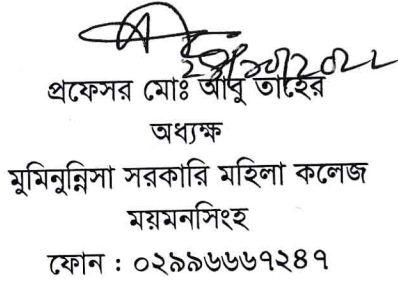 প্রফেসর মোঃ আবু তাহের
অধ্যক্ষ
মুমিনুন্নিসা সরকারি মহিলা কলেজ
ময়মনসিংহ
ফোন : ০২৯৯৬৬৬৭২৪৭